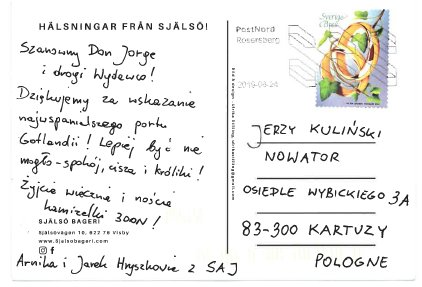 HÄLSNINGAR FRÅN SJÄLSÖ!
Szanowny Don Jorge
i drogi Wydawco!
Dziękujemy za wskazanie
najwspanialszego portu
Gotlandii! Lepiej być nie
mogło - spokój, cisza i króliki!
Żyjcie wiecznie i noście
kamizelki 300N!
SJÄLSÖ BAGERI
Själsövägen 10, 622 76 Visby
www.Sjalsobageri.com
Arnika i Jarek Hryszkowie z SAJ
PostNord
Rosersberg
2019-08-24
Sverige
JERZY KULIŃSKI
NOWATOR
OSIEDLE WYBICKIEGO 3A
83-300 KARTUZY
POLOGNE